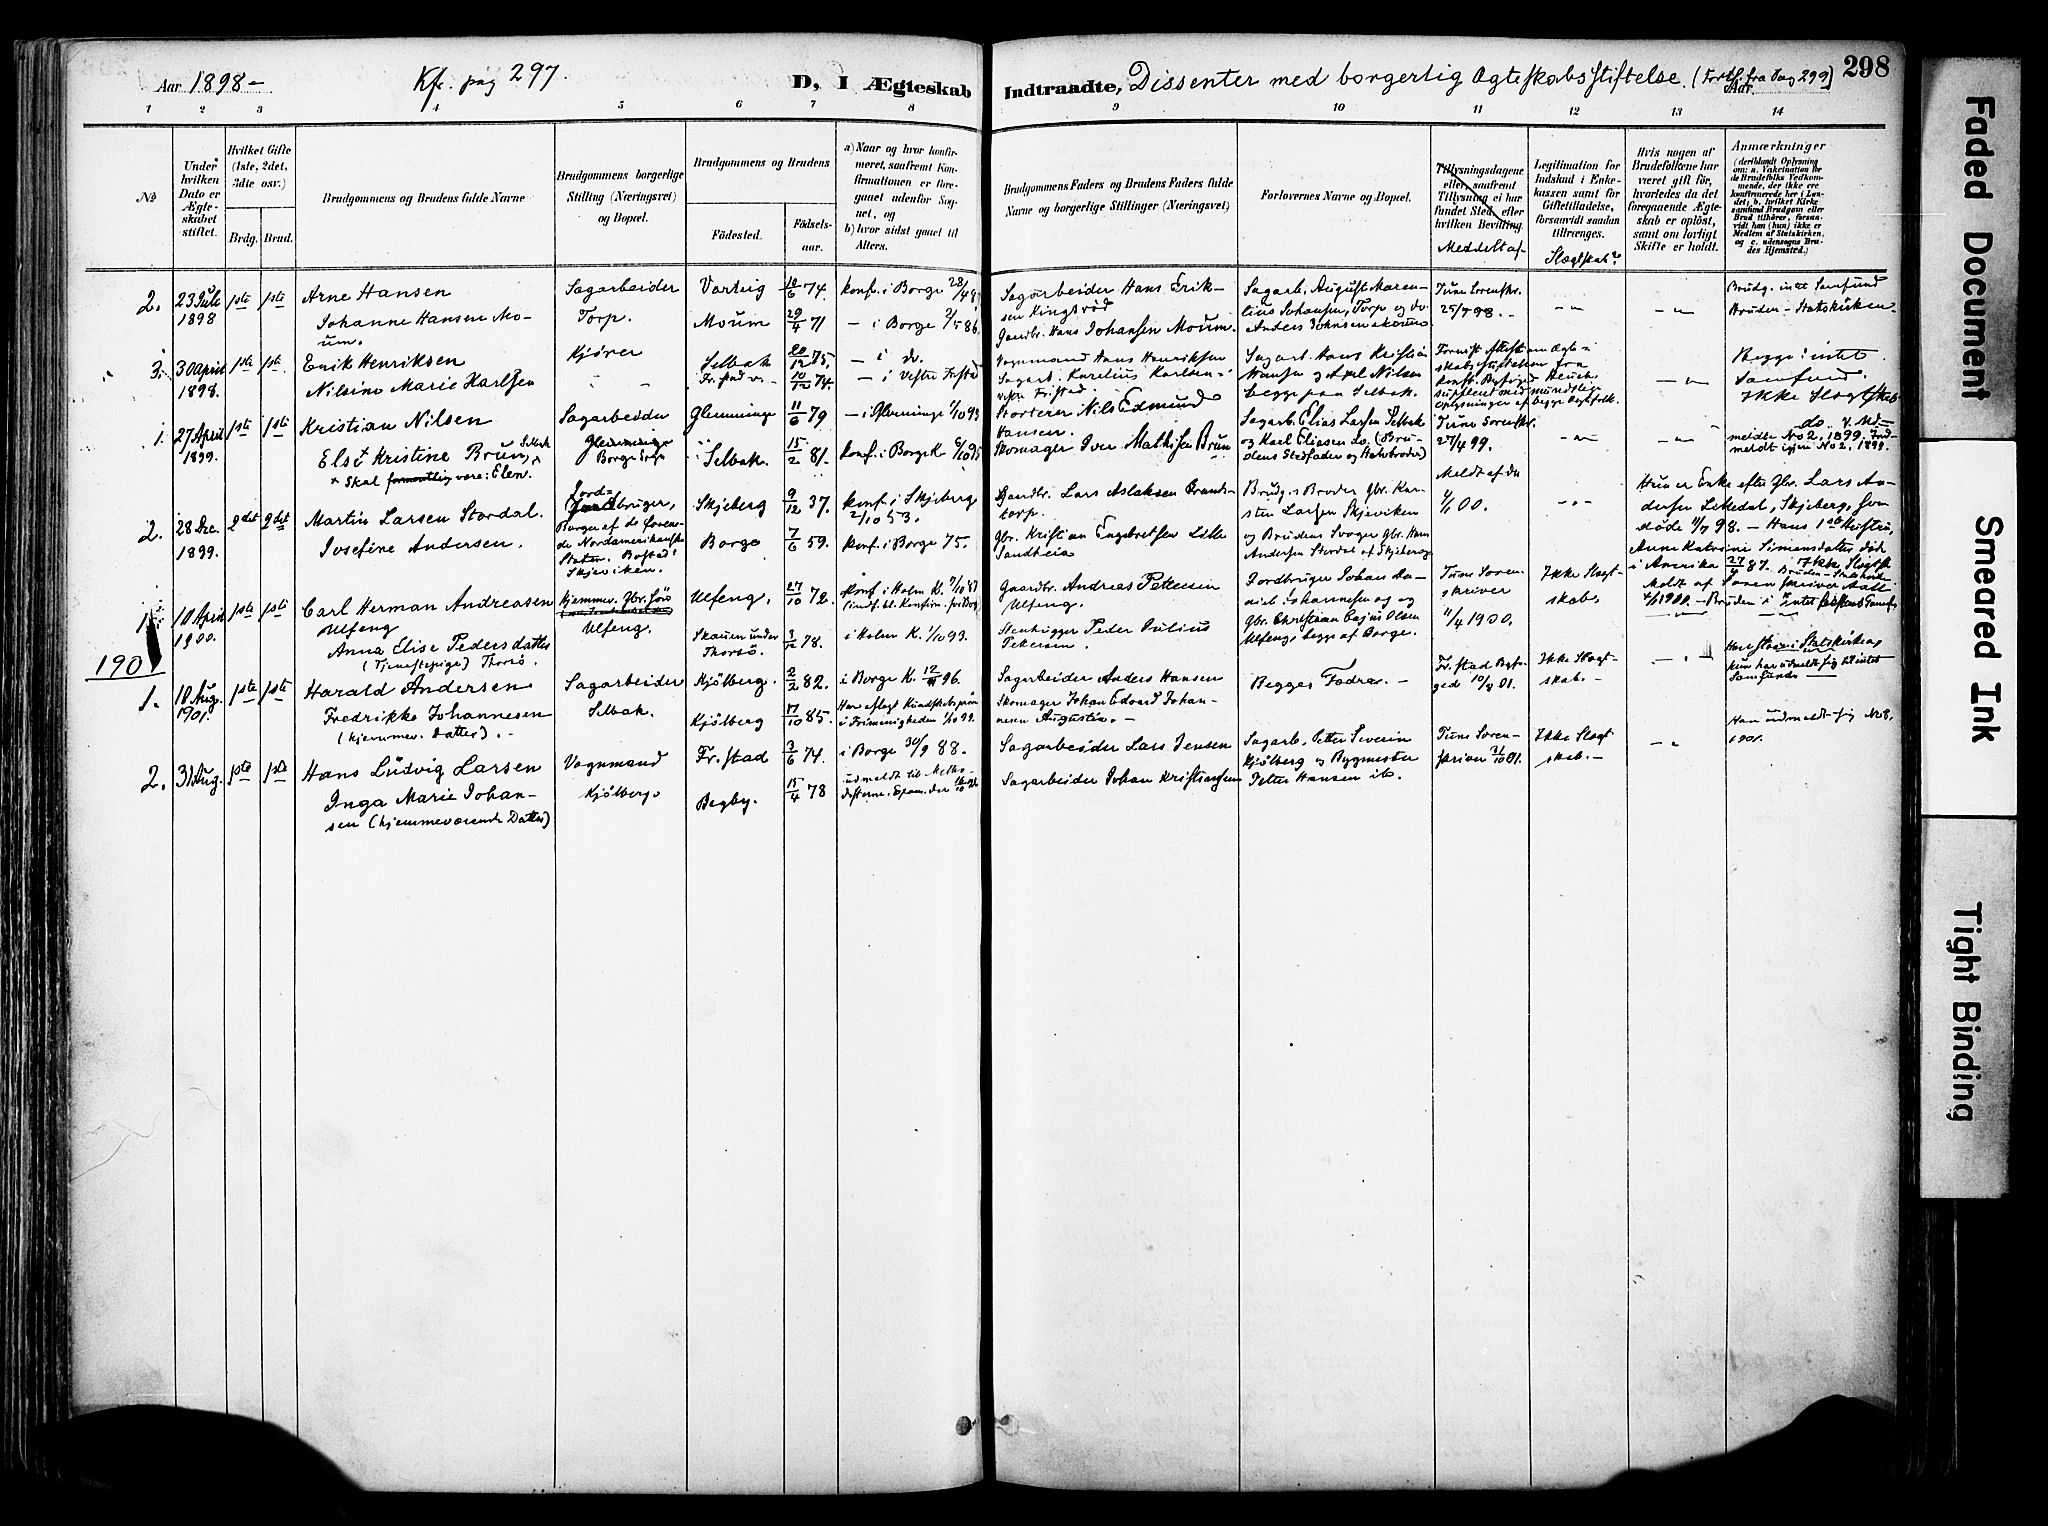 Aar 1898 –
Kfr. pag 297.
D, I Ægteskab Indtraadte, Dissenter med borgerlig Ægteskabsstiftelse. (Fortf. fra Pag 299)
Aar
298
1 2 3 4 5 6 7 8 9 10 11 12 13 14
No
Under hvilken Dato er Ægteskabet stiftet.
Hvilket Gifte (1ste, 2det, 3die osv.)
Brdg. Brud.
Brudgommens og Brudens fulde Navne
Brudgommens borgerlige Stilling (Næringsvei) og Bopæl.
Brudgommens og Brudens
Fødested.
Fødselsaar.
a) Naar og hvor konfirmeret, saafremt Konfirmationen er foregaaet udenfor Sognet, og
b) hvor sidst gaaet til Alters.
Brudgommens Faders og Brudens Faders fulde Navne og borgerlige Stillinger (Næringsvei)
Forlovernes Navne og Bopæl.
Tillysningsdagene eller, saafremt Tillysning ei har fundet Sted, efter hvilken Bevilling.
Meddelt af
Legitimation for Indskud i Enkekassen samt for Giftetilladelse, forsaavidt saadan tiltrænges.
Slægtskab?
Hvis nogen af Brudefolkene har været gift før, hvorledes da det foregaaende Ægteskab er opløst, samt om lovligt Skifte er holdt.
Anmærkninger
(deriblandt Oplysning om: a. Vakcination for de Brudefolks Vedkommende, der ikke ere konfirmerede her i Landet; b. hvilket Kirkesamfund Brudgom eller Brud tilhører, forsaavidt han (hun) ikke er Medlem af Statskirken, og c. udensogns Brudes Hjemsted.)
2. 23 Juli 1898 1ste 1ste
Arne Hansen
Johanne Hansen Moum.
Sagarbeider
Torp.
Varteig 10/6 74. konf. i Borge
Moum 29/4 71 – i Borge
Sagarbeider Hans Eriksen Kingsrød
Gaardbr. Hans Johansen Moum.
Sagarb. August Marenlius Johansen, Torp og do Anders Johnsen
Tune Sorenskr. 25/7 98. – – " – – " –
Brudg. intet Samfund
Bruden – Statskirken
3. 30 April 1898. 1ste 1ste
Enik Henriksen
Nilsine Marie Karlsen
Kjører
Selbak 20/12 75. – i do.
Fr.stad 10/12 74. – i Vestre Fr.stad
Vognmand Hans Henriksen
Sagarb. Karelius Karlsen
Sagarb. Hans Kristian Hansen og Axel Nilsen begge paa Selbak.
– " –
Begge: intet Samfund.
Ikke Slægtskab
1. 27 April 1899. 1ste 1ste
Kristian Nilsen
Else Kristine Brun, Selbak
× Skal være: Elen.
Sagarbeider
Glemminge
Borge Sogn
Glemminge 11/6 79 – i Glemminge
Selbak. 15/2 81. konf. i Borge K.
Nils Edmund Hansen.
Skomager Iver Mathisen Brun
Sagarb. Elias Larsen Selbak og Karl Eliasen do (Brudens Stedfader og Halvbroder)
Tune Sorenskr. 27/4 99. – " – – " –
do. Udmeldte No 2, 1899. Indmeldt igjen No 2. 1899.
2. 28 Dec. 1899. 2det 2det
Martin Larsen Stordal.
Josefine Andersen.
Jordbruger,
Borger af de forenede Nordamerikanske Stater. Bosted: Skjeviken.
Skjeberg 9/12 37. Konf. i Skjeberg 2/10 53.
Borge 7/6 59. Konf. i Borge 75.
Gaardbr. Lars Aslaksen
Gbr. Kristian Engebretsen Lille Sandheia
Brudg.s Broder Gbr. Karsten Larsen Skjeviken og Brudens Svoger Gbr. Hans Andersen Stordal af Skjeberg
Meldt af do
– " –
Hun er Enke efter Gbr. Lars Andersen, Skjeberg, som døde 98. – Hans 1ste Hustru, Anne Katrine Simensdatter døde i Amerika 27/ 87. Ikke Slægtsk. Bruden – Statskirken
1. 10 April 1900. 1ste 1ste
Carl Herman Andreasen Ulfeng
Anna Elise Pedersdatter
(Tjenestepige) Thorsø.
Hjemmev. Gbr. søn
Ulfeng.
Ulfeng. 27/10 72. Konf. i Holm K.
Skauen under Thorsø. 78. i Holm K. 1/10 93.
Gaardbr. Andreas Pettersen Ulfeng.
Stenhugger Peder Julius Pettersen.
Jordbruger Johan Daniel Johannesen og Gbr. Christian Cajus Olsen Ulfeng, begge af Borge.
Tune Sorenskriver 11/4 1900.
Ikke Slægtskab.
1901
1. 10 Aug. 1901. 1ste 1ste
Harald Andersen
Fredrikke Johannesen
(hjemmev. Datter). –
Sagarbeider
Selbak.
Kjølberg. 2/2 82. i Borge K. 96.
Kjølberg 17/10 85. Har aflagt Kundskabsprøve i Frimenigheden 1/10 99.
Sagarbeider Anders Hansen
Skomager Johan Edvard Johannesen Augustin. –
Begges Fædre. –
Fr.stad Bygfoged 10/8 01.
Ikke Slægtskab. –
– " –
Han staar i Statskirken, hun har udmeldt sig til intet Samfund
Han udmeldt sig No 8. 1901.
2. 31 Aug. 1ste 1ste
Hans Ludvig Larsen
Inga Marie Johansen (hjemmeværende Datter)
Vognmand
Kjølberg
Fr.stad 3/6 74. i Borge 30/9 88.
Begby. 15/4 78
Sagarbeider Lars Jensen
Sagarbeider Johan Kristiansen
Sagarb. Petter Severin Kjølberg og Bygmester Petter Hansen ib.
Tune Soren-
Ikke Slægtskab. –
– "
Faded Document
Smeared Ink
Tight Binding